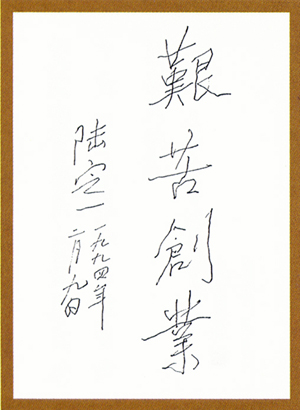 艱苦創業
陸定一
一九九四年
二月九日